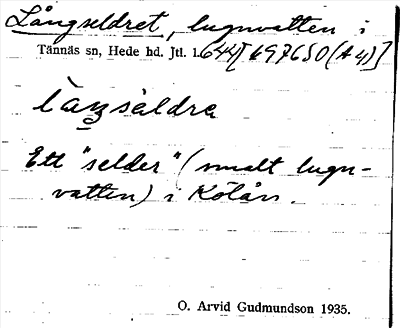 Långseldret, lugnvatten i
Tännäs sn, Hede hd. Jtl. l. 644[697650 (A4)]
Ett "selder" (smalt lugn-
vatten) i Kölån.
O. Arvid Gudmundson 1935.